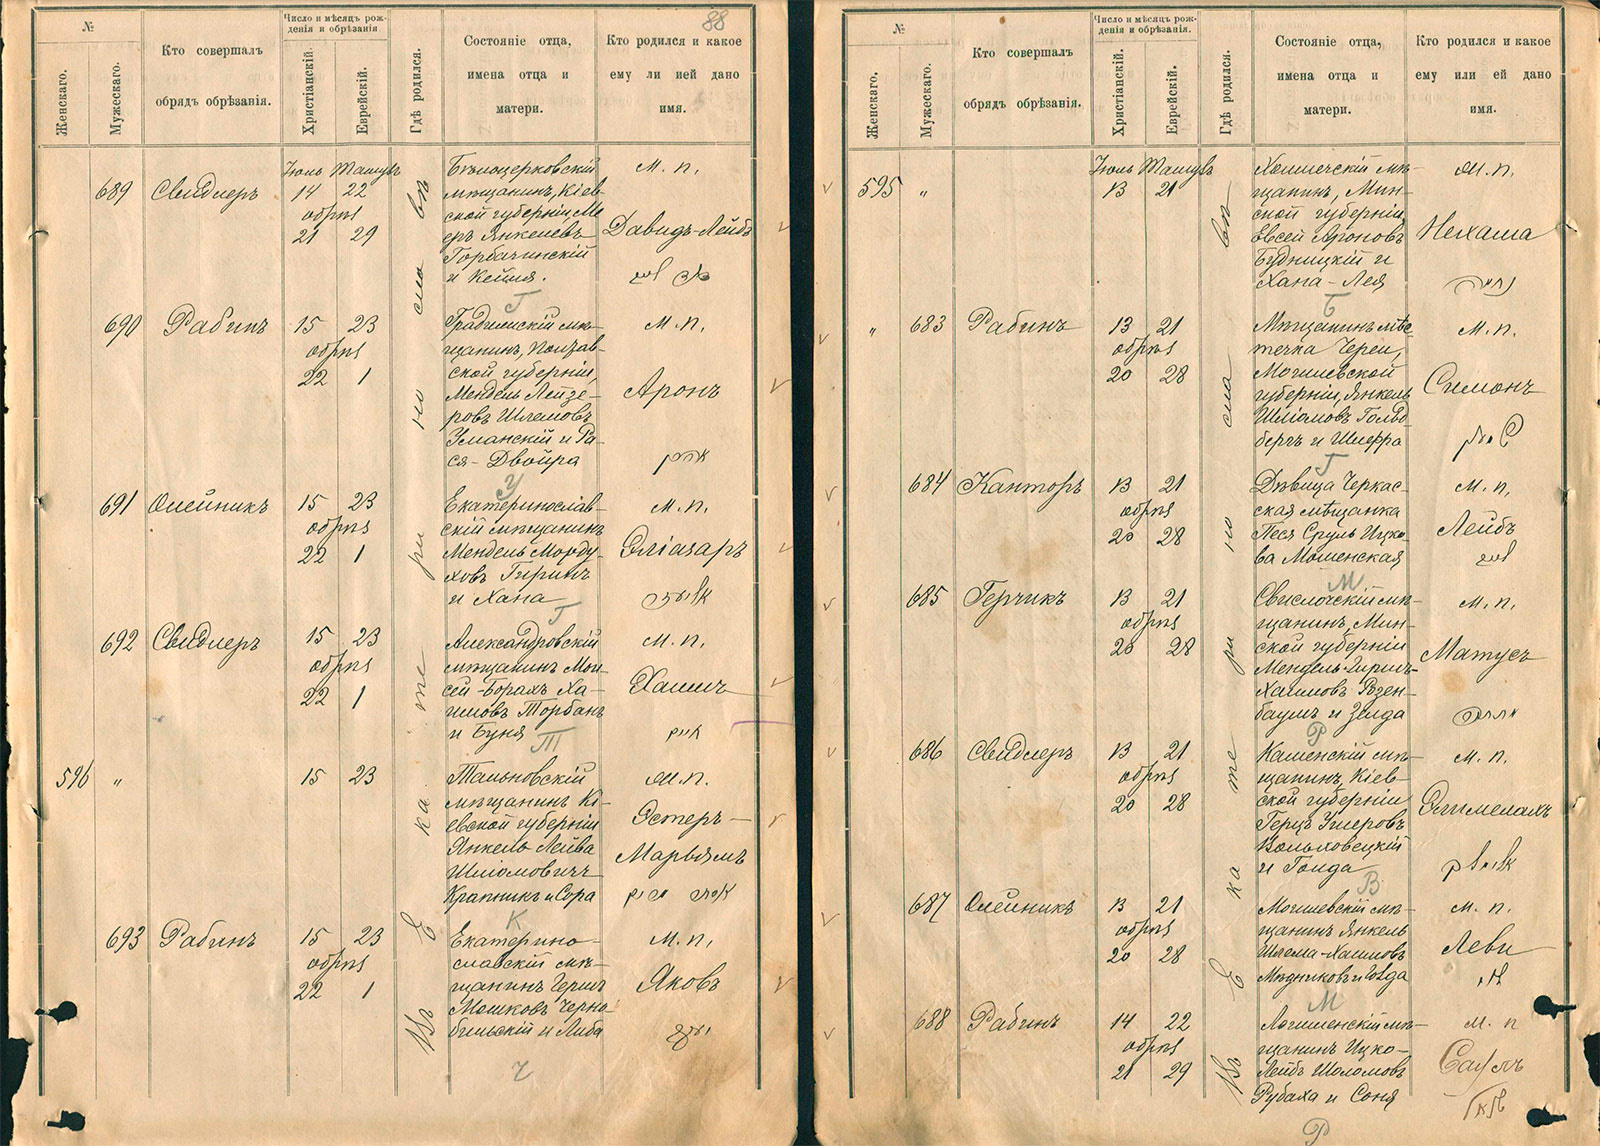 88
№
Женскаго.
Мужескаго.
Кто совершалъ
обрядъ обрѣзанія.
Число и мѣсяцъ рож-
денія и обрѣзанія
Христіанскій.
Еврейскій.
Гдѣ родился.
Состояніе отца,
имена отца и
матери.
Кто родился и какое
ему ли ией дано
имя.
Въ Екатеринославѣ
689 Свидлеръ
Іюль Тамузъ
14 22
обрѣз
21 29
Бѣлоцерковскій
мѣщанинъ, Кіев-
ской губерніи, Ме-
еръ Янкелевъ
Горбачинскій
и Кейля.
м. п.
Давидъ-Лейбъ
690 Рабинъ
15 23
обрѣз
22 1
Г
Градижскій мѣ-
щанинъ, Полтав-
ской губерніи,
Мендель Лейзе-
ровъ Шлемовъ
Уманскій и Ра-
ся-Двойра
м. п.
Аронъ
691 Олейникъ
15 23
обрѣз
22 1
У
Екатеринослав-
скій мѣщанинъ
Мендель Морду-
ховъ Гиринъ
и Хана
м. п.
Эліазаръ
692 Свидлеръ
15 23
обрѣз
22 1
Г
Александровскій
мѣщанинъ Мои-
сей-Борахъ Ха-
имовъ Торбанъ
и Буня
м. п.
Хаимъ
חיים
596 "
15 23
Т
Тальновскій
мѣщанинъ Кі-
евской губерніи
Янкель Лейва
Шліомовичъ
Крапникъ и Сора
м. п.
Эстеръ-
Марьямъ
693 Рабинъ
15 23
обрѣз
22 1
К
Екатерино-
славскій мѣ-
щанинъ Гершъ
Мошковъ Черно-
быльскій и Либа
м. п.
Яковъ
Ч
№
Женскаго.
Мужескаго.
Кто совершалъ
обрядъ обрѣзанія.
Число и мѣсяцъ рож-
денія и обрѣзанія.
Христіанскій.
Еврейскій.
Гдѣ родился.
Состояніе отца,
имена отца и
матери.
Кто родился и какое
ему или ей дано
имя.
Въ Екатеринославѣ
595 "
Іюль Тамузъ
13 21
мѣ-
щанинъ, Мин-
ской губерніи,
Евсей Ароновъ
Будницкій и
Хана-Лея
м. п.
Нехама
" 683 Рабинъ
13 21
обрѣз
20 28
Б
Мѣщанинъ мѣс-
течка Череи,
Могилевской
губерніи, Янкель
Шліомовъ Гольд-
бергъ и Шифра
м. п.
Симонъ
684 Канторъ
13 21
обрѣз
20 28
Г
Дѣвица Черкас-
ская мѣщанка
Песя Сруль Ицко-
ва Мошенская
м. п.
Лейбъ
685 Герчикъ
13 21
обрѣз
20 28
М
Свислочскій мѣ-
щанинъ, Мин-
ской губерніи
Мендель-Гиршъ-
Хаимовъ Розен-
баумъ и Зелда
м. п.
Матусъ
686 Свидлеръ
13 21
обрѣз
20 28
Р
Каменскій мѣ-
щанинъ, Кіев-
ской губерніи
Герцъ Ушеровъ
Вольховецкій
и Голда
м. п.
Элимелахъ
687 Олейникъ
13 21
обрѣз
20 28
В
Могилевскій мѣ-
щанинъ Янкель
Шлема-Хаимовъ
Мѣдниковъ и Голда
м. п.
Леви
688 Рабинъ
14 22
обрѣз
21 29
М
Логишенскій мѣ-
щанинъ Ицко-
Лейбъ Шоломовъ
Рубаха и Соня
м. п
Саулъ
Р